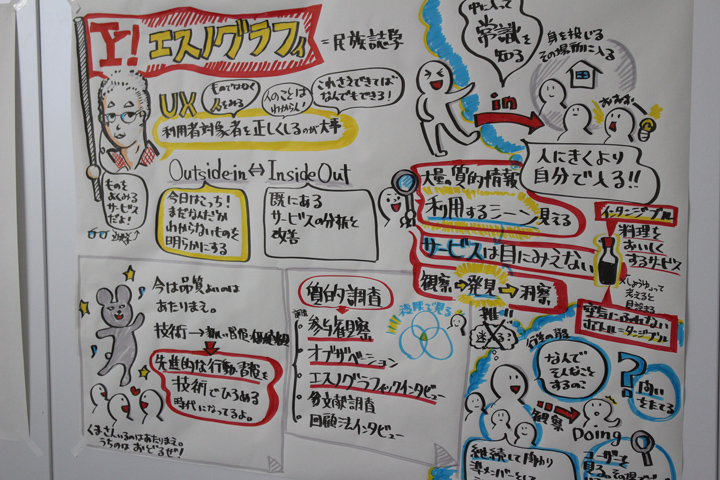 Y! エスノグラフィ
=民族誌学
UX
ものではなく
人をみる
人のことは
わからん!
これさえできてれば
なんでもできる!
利用者対象者を正しくしるのが大事
Outside-in ⇔ InsideOut
ものを
あんみる
サービス
だよ!
今日はこっち!
まだなんだか
わからないものを
明らかにする
既にある
サービスの分析と
改善
中に入って
常識を
知る
in
身を投じる
その場所に入る
人にきくより
自分で入る!!
大量の質的情報
利用するシーン見える
サービスは目にみえない
観察→発見→洞察
インタンジブル
料理を
おいしく
するサービス
しょうゆって
考えると
ボトル=タンジブル
今は品質よいのは
あたりまえ。
技術→
先進的な行動・習慣を
技術でひろめる
時代になってるよ。
くまさんいるのはあたりまえ。
うちのはおどるぜ!
質的調査
参与観察
オブザベーション
エスノグラフィックインタビュー
文献調査
回顧法インタビュー
なんで
そんなこと
するの?
?
問い
をたてる
観察
Doing
継続して関わり
ユーザーを
見る。